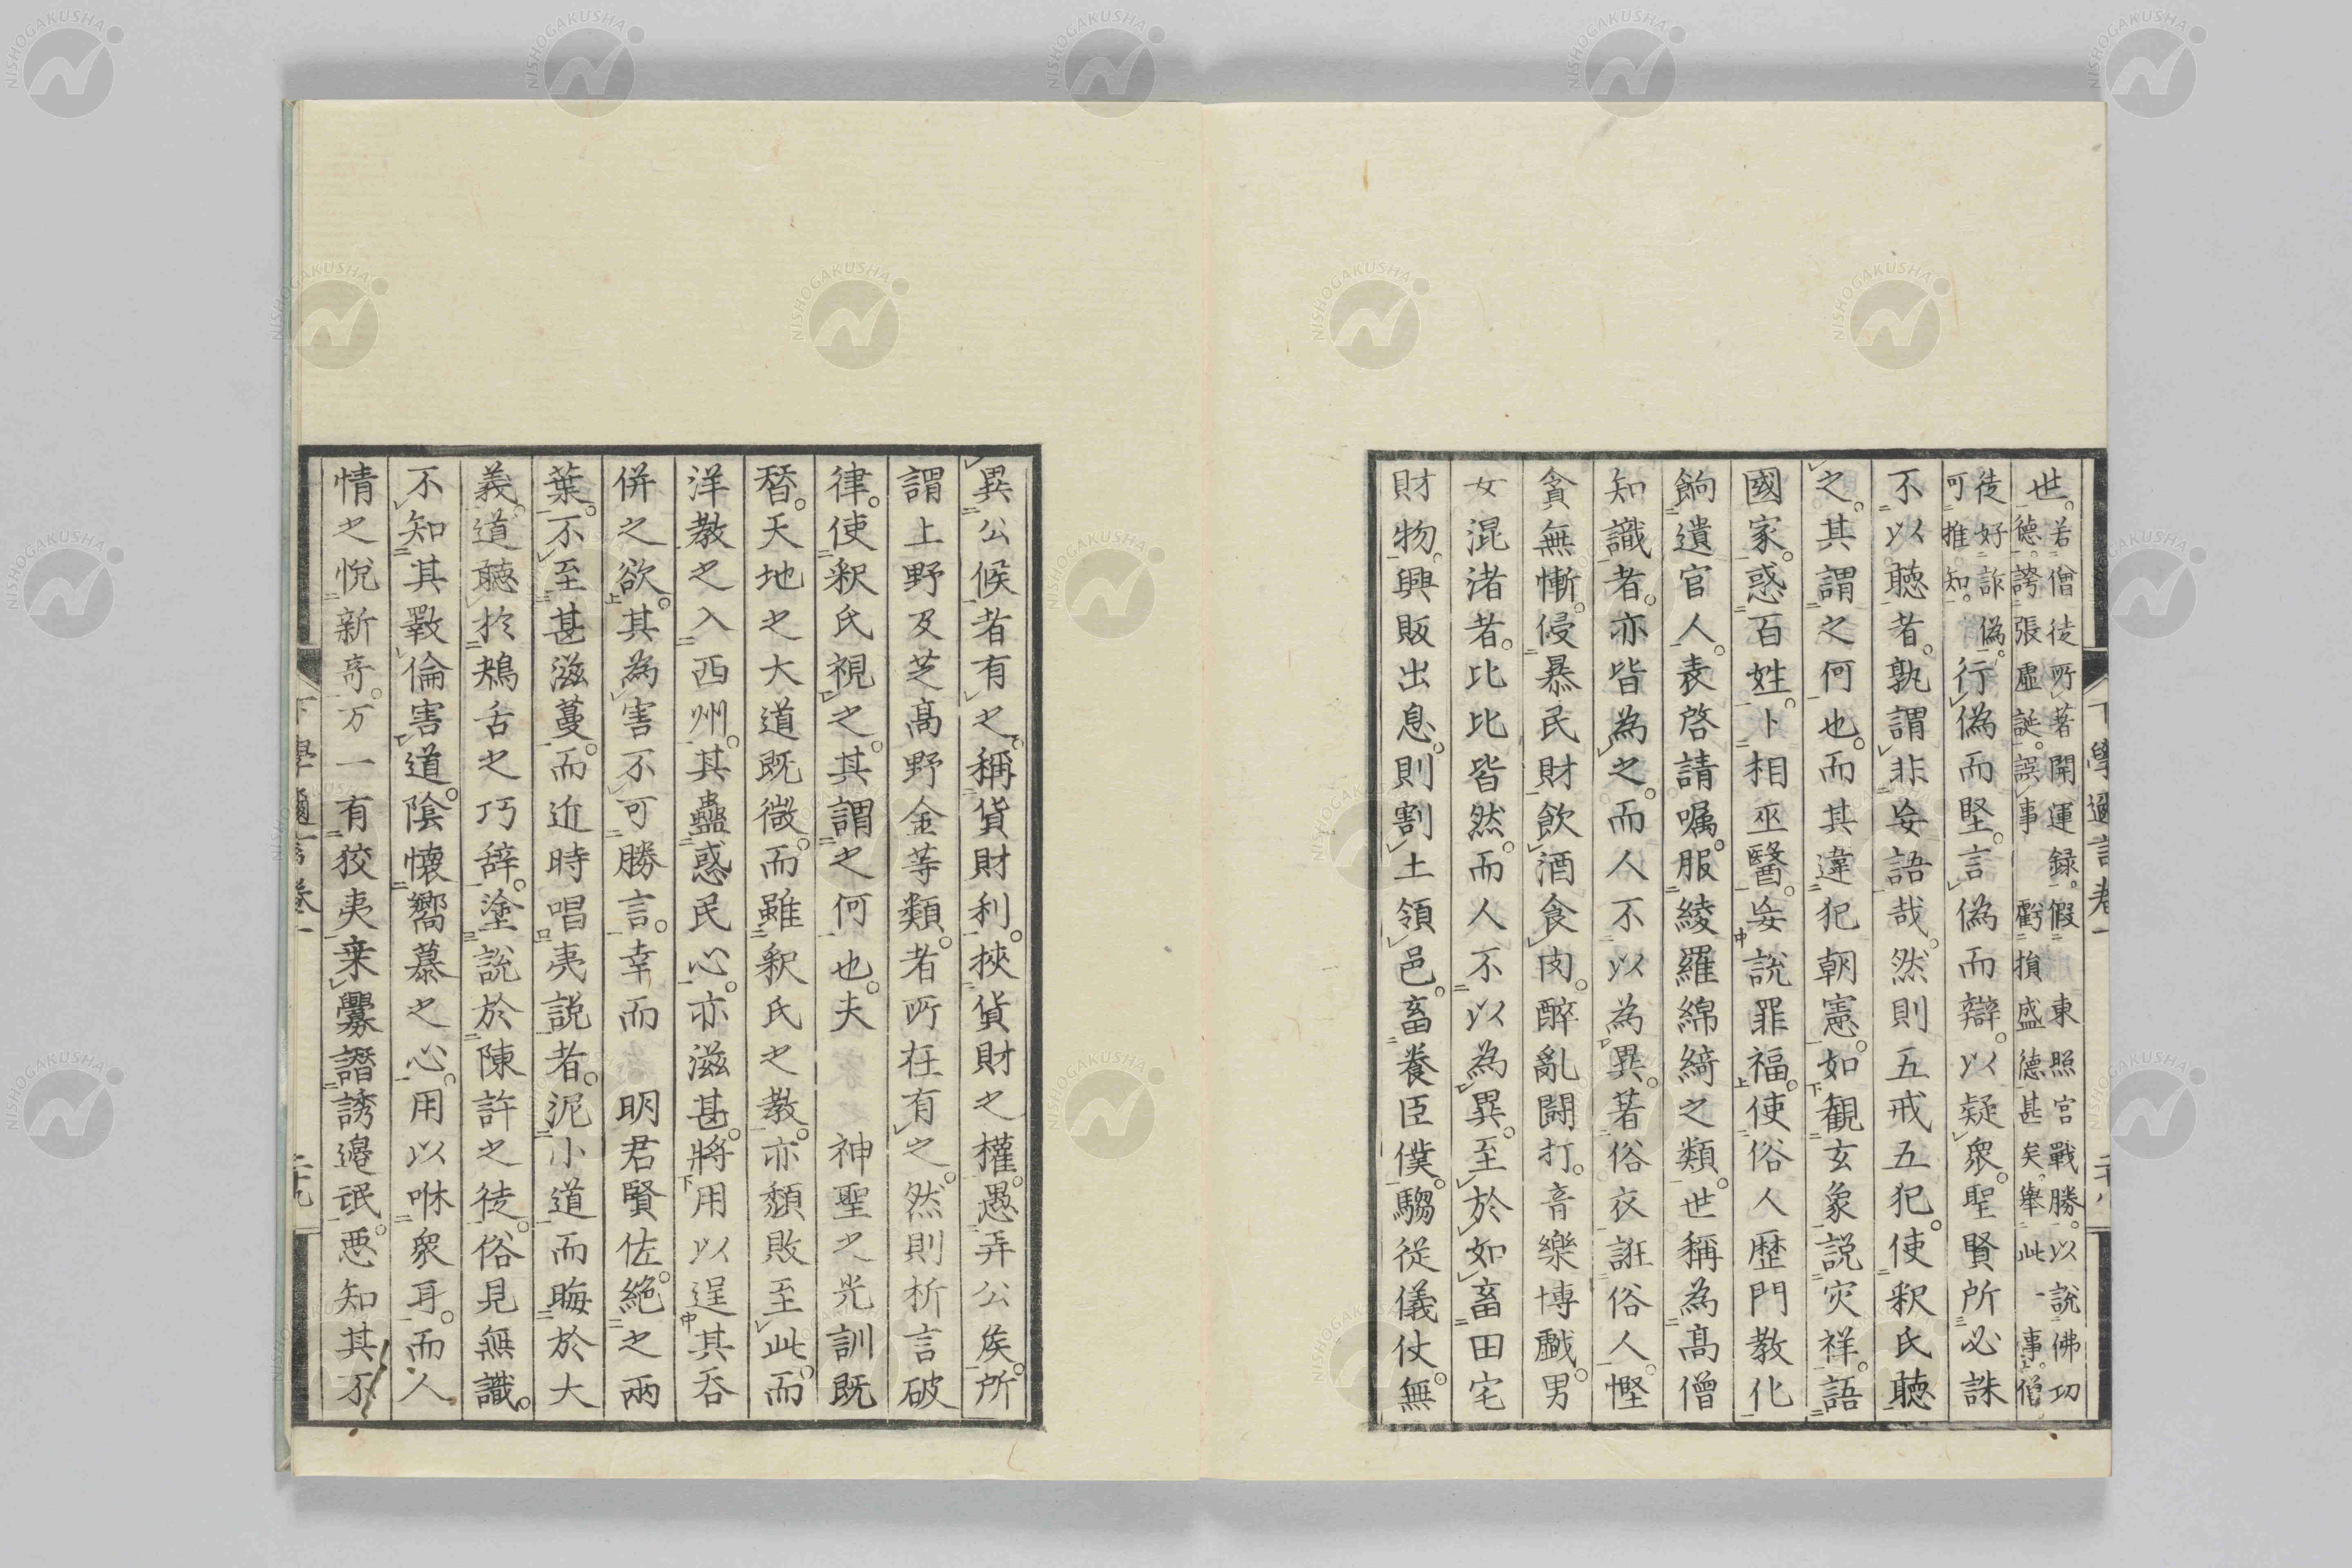 世。若僧徒所著開運録。假東照宮戰勝。以說佛功
德。誇張虛誕。誤事虧損盛德甚矣。舉此一事。僧
徒好詐偽。可推知。行偽而堅。言偽而辯。以疑衆。聖賢所必誅
不以聽者。孰謂非妄語哉。然則五戒五犯。使釈氏聽
之。其謂之何也。而其違犯朝憲。如觀玄象說灾祥。語
國家。惑百姓。卜相巫醫。妄説罪福。使俗人歷門教化
餉遺官人。表啓請嘱。服綾羅綿綺之類。世稱為髙僧
知識者。亦皆為之。而人不以為異。著俗衣誑俗人。慳
貪無慚。侵暴民財飲酒食肉。醉亂鬪打。音樂博戲。男
女混渚者。比比皆然。而人不以為異。至於如畜田宅
財物。興販出息。則割土領邑。畜養臣僕。騶従儀仗無
下學邇言卷一
二十八
異公候者有之。稱貨財利。挾貨財之權。愚弄公侯。所
謂上野及芝髙野金等類。者所在有之。然則析言破
律。使釈氏視之。其謂之何也。夫神聖之光訓既
替。天地之大道既微。而雖釈氏之教。亦頽敗至此。而
洋教之入西州。其蠱惑民心。亦滋甚。將用以逞其呑
併之欲。其為害不可勝言。幸而明君賢佐。絶之兩
葉。不至甚滋蔓。而近時唱夷説者。泥小道而晦於大
義。道聽於鴂舌之巧辞。塗説於陳許之徒。俗見無識。
不知其斁倫害道。陰懷嚮慕之心。用以咻衆耳。而人
情之悅新奇。万一有狡夷乗釁譖誘邉氓。悪知其不
下學邇言卷一
二十九